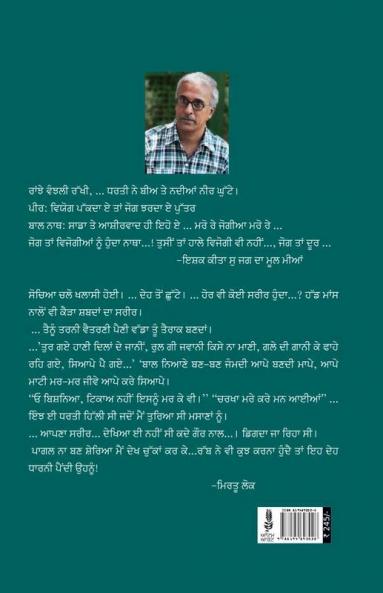 ਰਾਂਝੇ ਵੰਝਲੀ ਰੱਖੀ, ... ਧਰਤੀ ਨੇ ਬੀਅ ਤੇ ਨਦੀਆਂ ਨੀਰ ਘੁੱਟੇ।
ਪੀਰ: ਵਿਯੋਗ ਪੱਕਦਾ ਏ ਤਾਂ ਜੋਗ ਝਰਦਾ ਏ ਪੁੱਤਰ
ਬਾਲ ਨਾਥ: ਸਾਡਾ ਤੇ ਆਸ਼ੀਰਵਾਦ ਹੀ ਇਹੋ ਏ ... ਮਰੋ ਰੇ ਜੋਗੀਆ ਮਰੋ ਰੇ ...
ਜੋਗ ਤਾਂ ਵਿਜੋਗੀਆਂ ਨੂੰ ਹੁੰਦਾ ਨਾਥਾ...! ਤੁਸੀਂ ਤਾਂ ਹਾਲੇ ਵਿਜੋਗੀ ਵੀ ਨਹੀਂ..., ਜੋਗ ਤਾਂ ਦੂਰ ...
-ਇਸ਼ਕ ਕੀਤਾ ਸੁ ਜਗ ਦਾ ਮੂਲ ਮੀਆਂ
ਸੋਚਿਆ ਚਲੋ ਖਲਾਸੀ ਹੋਈ। ... ਦੇਹ ਤੋਂ ਛੁੱਟੇ। ... ਹੋਰ ਵੀ ਕੋਈ ਸਰੀਰ ਹੁੰਦਾ...? ਹੱਡ ਮਾਂਸ
ਨਾਲੋਂ ਵੀ ਕੈੜਾ ਸ਼ਬਦਾਂ ਦਾ ਸਰੀਰ।
... ਤੈਨੂੰ ਤਰਨੀ ਵੈਤਰਣੀ ਪੈਣੀ ਵੱਡਾ ਤੂੰ ਤੈਰਾਕ ਬਣਦਾਂ।
...'ਤੁਰ ਗਏ ਹਾਣੀ ਦਿਲਾਂ ਦੇ ਜਾਨੀਂ, ਰੁਲ ਗੀ ਜਵਾਨੀ ਕਿਸੇ ਨਾ ਮਾਣੀ, ਗਲੇ ਦੀ ਗਾਨੀ ਕੇ ਫਾਹੇ
ਰਹਿ ਗਏ, ਸਿਆਪੇ ਪੈ ਗਏ...' 'ਬਾਲ ਨਿਆਣੇ ਬਣ-ਬਣ ਜੰਮਦੀ ਆਪੇ ਬਣਦੀ ਮਾਪੇ, ਆਪੇ
ਮਾਟੀ ਮਰ-ਮਰ ਜੀਵੇ ਆਪੇ ਕਰੇ ਸਿਆਪੇ।
"ਓ ਬਿਸ਼ਨਿਆ, ਟਿਕਾਅ ਨਹੀਂ ਇਸਨੂੰ ਮਰ ਕੇ ਵੀ।" "ਚਰਖਾ ਮਰੇ ਕਰੇ ਮਨ ਆਈਆਂ" ...
ਇੰਝ ਈ ਧਰਤੀ ਹਿੱਲੀ ਸੀ ਜਦੋਂ ਮੈਂ ਤੁਰਿਆ ਸੀ ਮਸਾਣਾਂ ਨੂੰ।
... ਆਪਣਾ ਸਰੀਰ... ਦੇਖਿਆ ਈ ਨਹੀਂ ਸੀ ਕਦੇ ਗੌਰ ਨਾਲ...। ਡਿਗਦਾ ਜਾ ਰਿਹਾ ਸੀ।
ਪਾਗਲ ਨਾ ਬਣ ਸ਼ੇਰਿਆ ਮੈਂ ਦੇਖ ਚੁੱਕਾਂ ਕਰ ਕੇ...ਰੱਬ ਨੇ ਵੀ ਕੁਝ ਕਰਨਾ ਹੁੰਦੈ ਤਾਂ ਇਹ ਦੇਹ
ਧਾਰਨੀ ਪੈਂਦੀ ਉਹਨੂੰ!
-ਮਿਰਤੂ ਲੋਕ
₹ 245/-